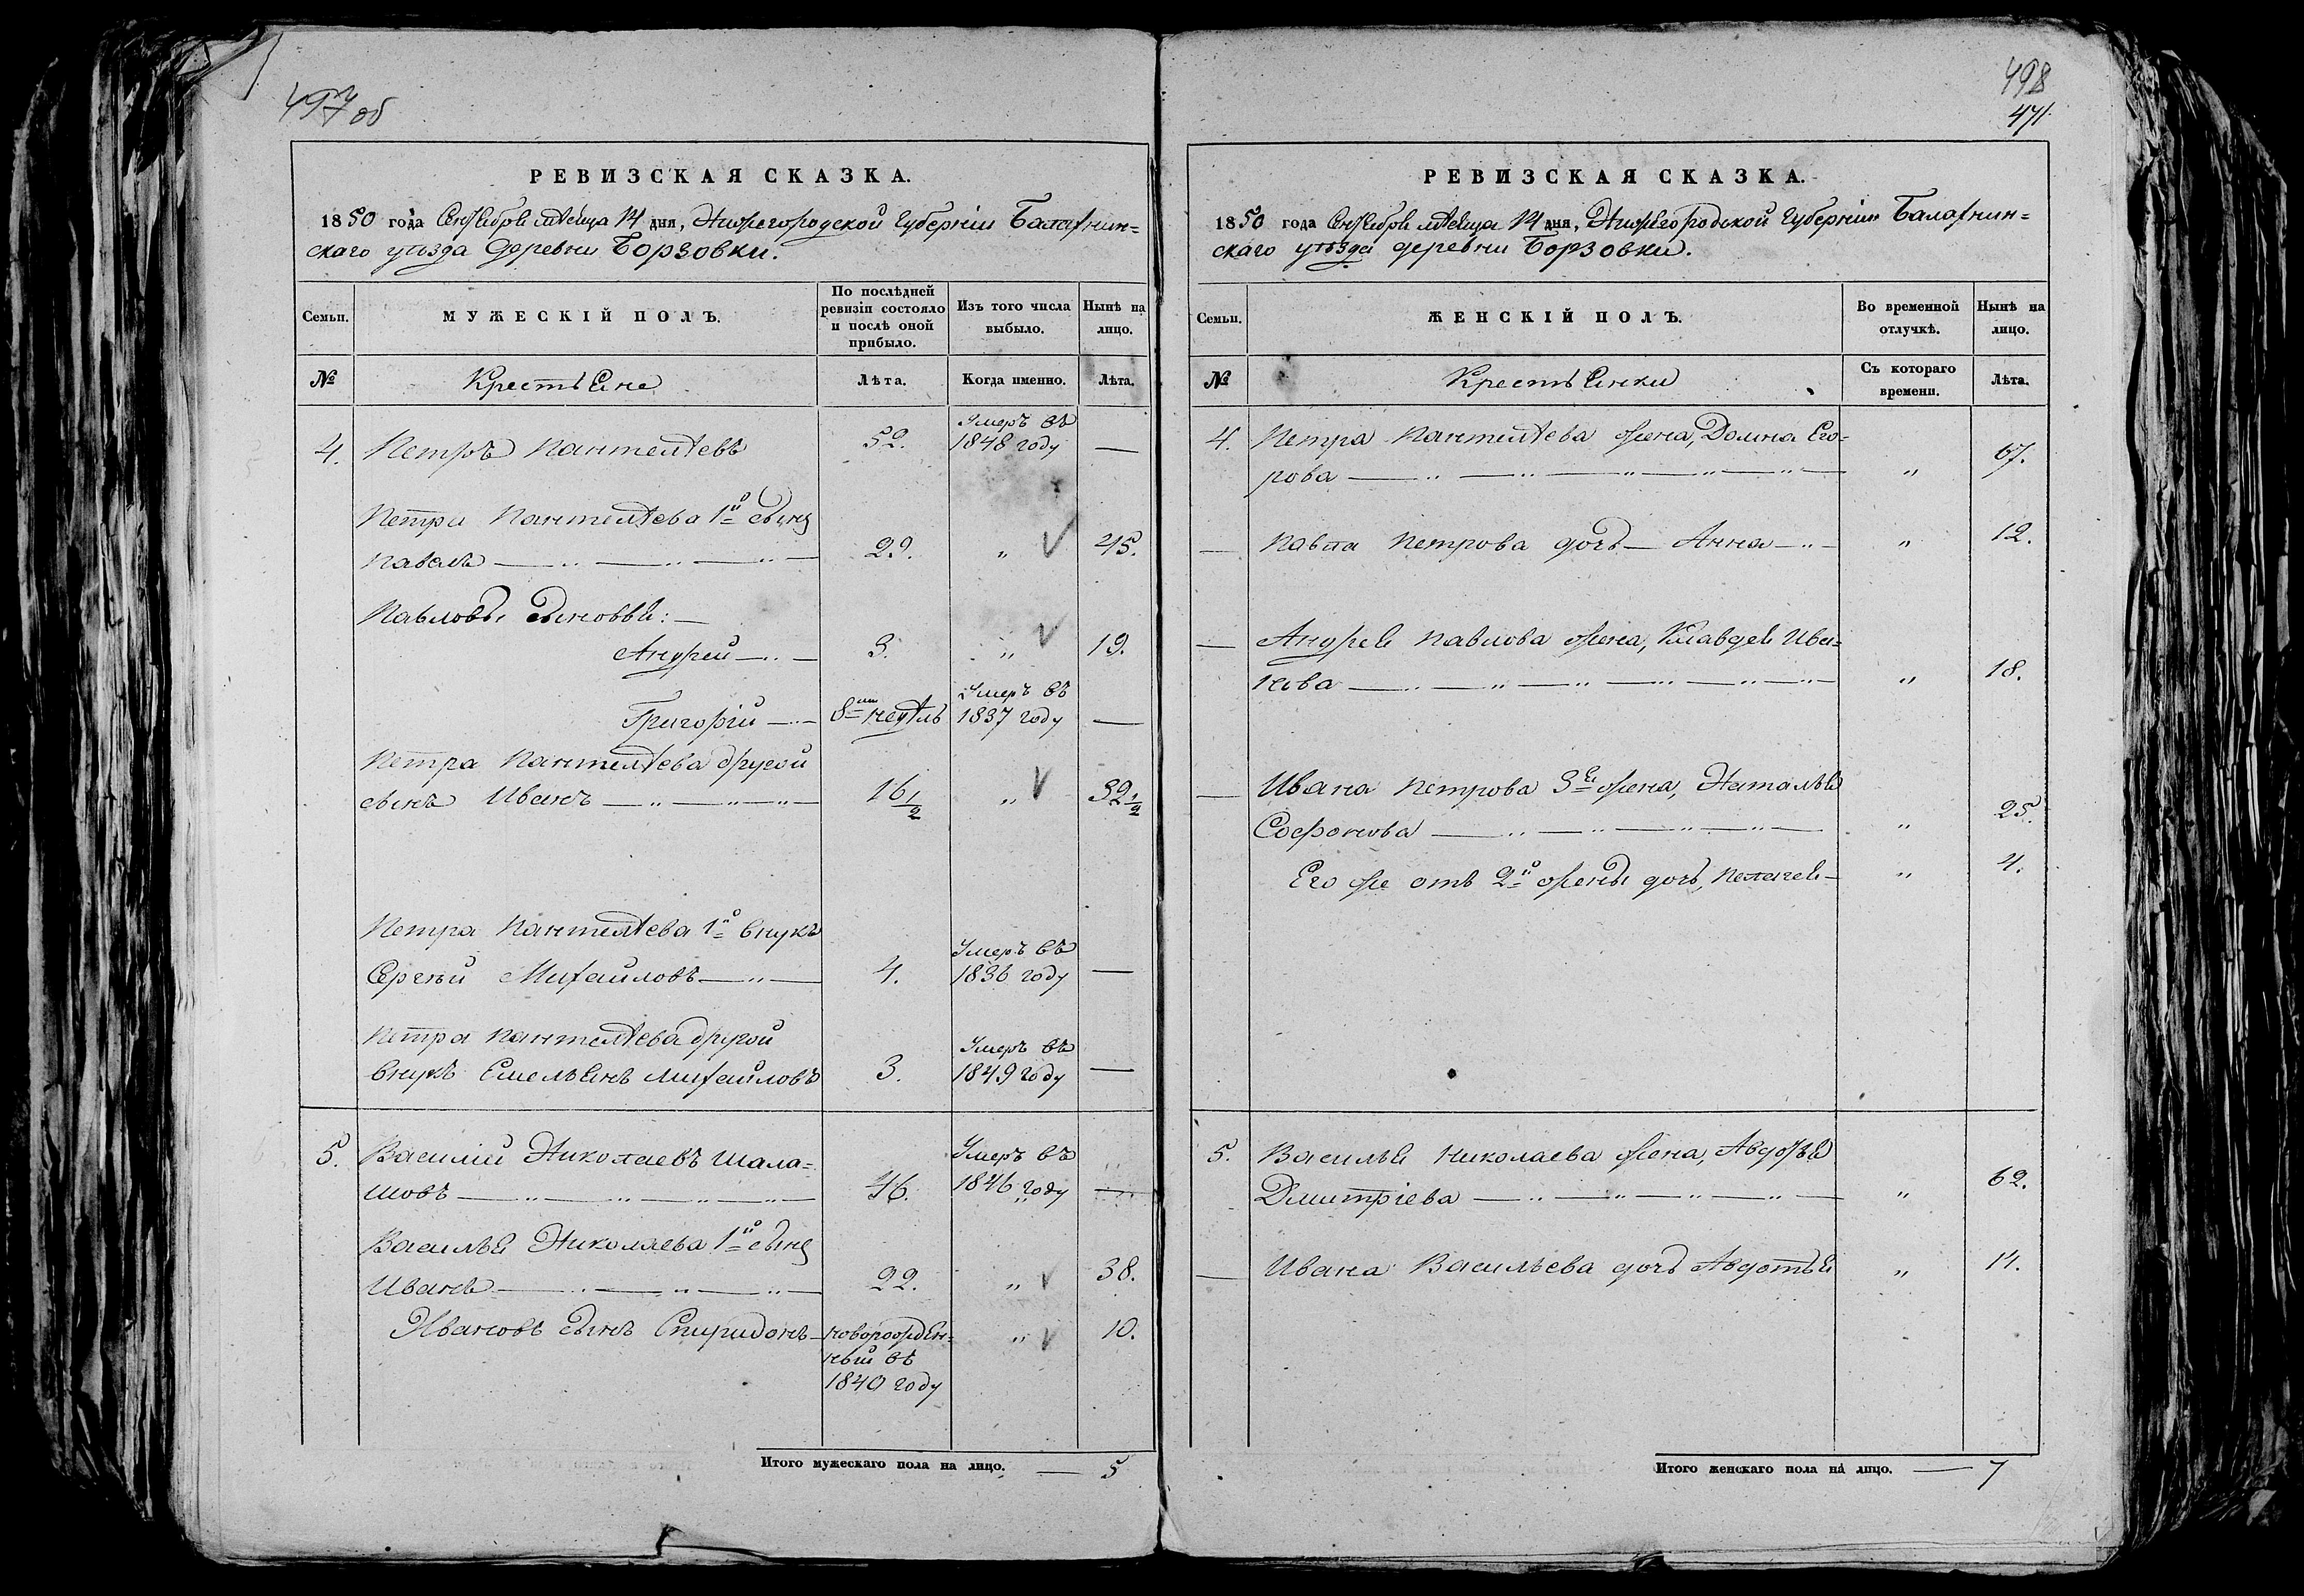 497 об
РЕВИЗСКАЯ СКАЗКА.
1850 года Сентября мѣсяца 14 дня, Нижегородской Губерніи Балахнин=
скаго уѣзда Деревни Борзовки.
Семьи.
МУЖЕСКІЙ ПОЛЪ.
По послѣдней ревизіи состояло и послѣ оной прибыло.
Изъ того числа выбыло.
Нынѣ на лицо.
№
Крестьяне
Лѣта.
Когда именно.
Лѣта.
4. Петръ Пантелѣевъ 52. Умеръ въ 1848 году —
Петра Пантелѣева 1й сынъ
Павелъ 29. „ 45.
Павловы сыновья:
Андрей 3. „ 19.
Григорій 8ми недѣль Умеръ въ 1837 году —
Петра Пантелѣева другой
сынъ Иванъ 16 1/2 „ 32 1/2
Петра Пантелѣева 1й внукъ
Сергѣй Михайловъ 4. Умеръ въ 1836 году —
Петра Пантелѣева другой
внукъ Емельянъ Михайловъ 3. Умеръ въ 1849 году —
5. Василій Николаевъ Шала=
шовъ 46. Умеръ въ 1846 году —
Василья Николаева 1й сынъ
Иванъ 22. „ 38.
Ивановъ сынъ Спиридонъ новорожден=
ный въ
1840 году „ 10.
Итого мужескаго пола на лицо. — 5
498
471.
РЕВИЗСКАЯ СКАЗКА.
1850 года Сентября мѣсяца 14 дня, Нижегородской Губерніи Балахнин=
скаго уѣзда деревни Борзовки.
Семьи.
ЖЕНСКІЙ ПОЛЪ.
Во временной отлучкѣ.
Нынѣ на лицо.
№
Крестьянки
Съ котораго времени.
Лѣта.
4. Петра Пантелѣева жена, Домна Его=
рова „ 67.
— Павла Петрова дочь — Анна „ 12.
— Андрея Павлова жена, Клавдея Ива=
нова „ 18.
— Ивана Петрова 3я жена, Наталья
Софонова „ 25.
Его же отъ 2й жены дочь, Пелагея „ 4.
5. Василья Николаева жена, Авдотья
Дмитріева „ 62.
— Ивана Васильева дочь Авдотья „ 14.
Итого женскаго пола на лицо. — 7